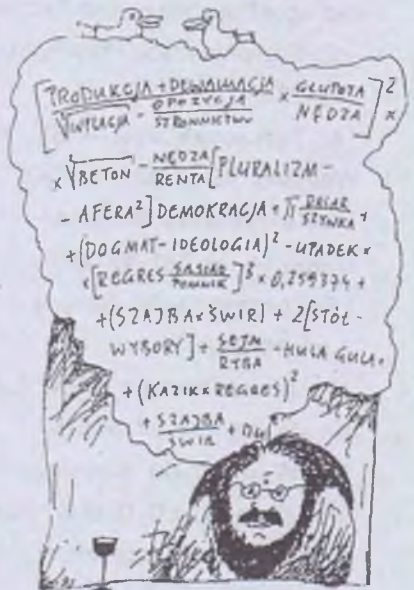 [PRODUKCJA + DEWALUACJA / √INFLACJA - OPOZYCJA / STRONNICTWO × GŁUPOTA / NĘDZA]² ×
× √BETON - NĘDZA / RENTA [PLURALIZM -
- AFERA²] DEMOKRACJA + π DOLAR / SZYNKA +
+ (DOGMAT - IDEOLOGIA)² - UPADEK ×
× [REGRES SĄSIAD / POMNIK]³ × 0,259374 +
+ (SZAJBA × ŚWIR) + 2[STÓŁ -
WYBORY] + SEJM / RYBA - HULA GULA +
+ (KAZIK × REGRES)²
+ SZAJBA / ŚWIR +